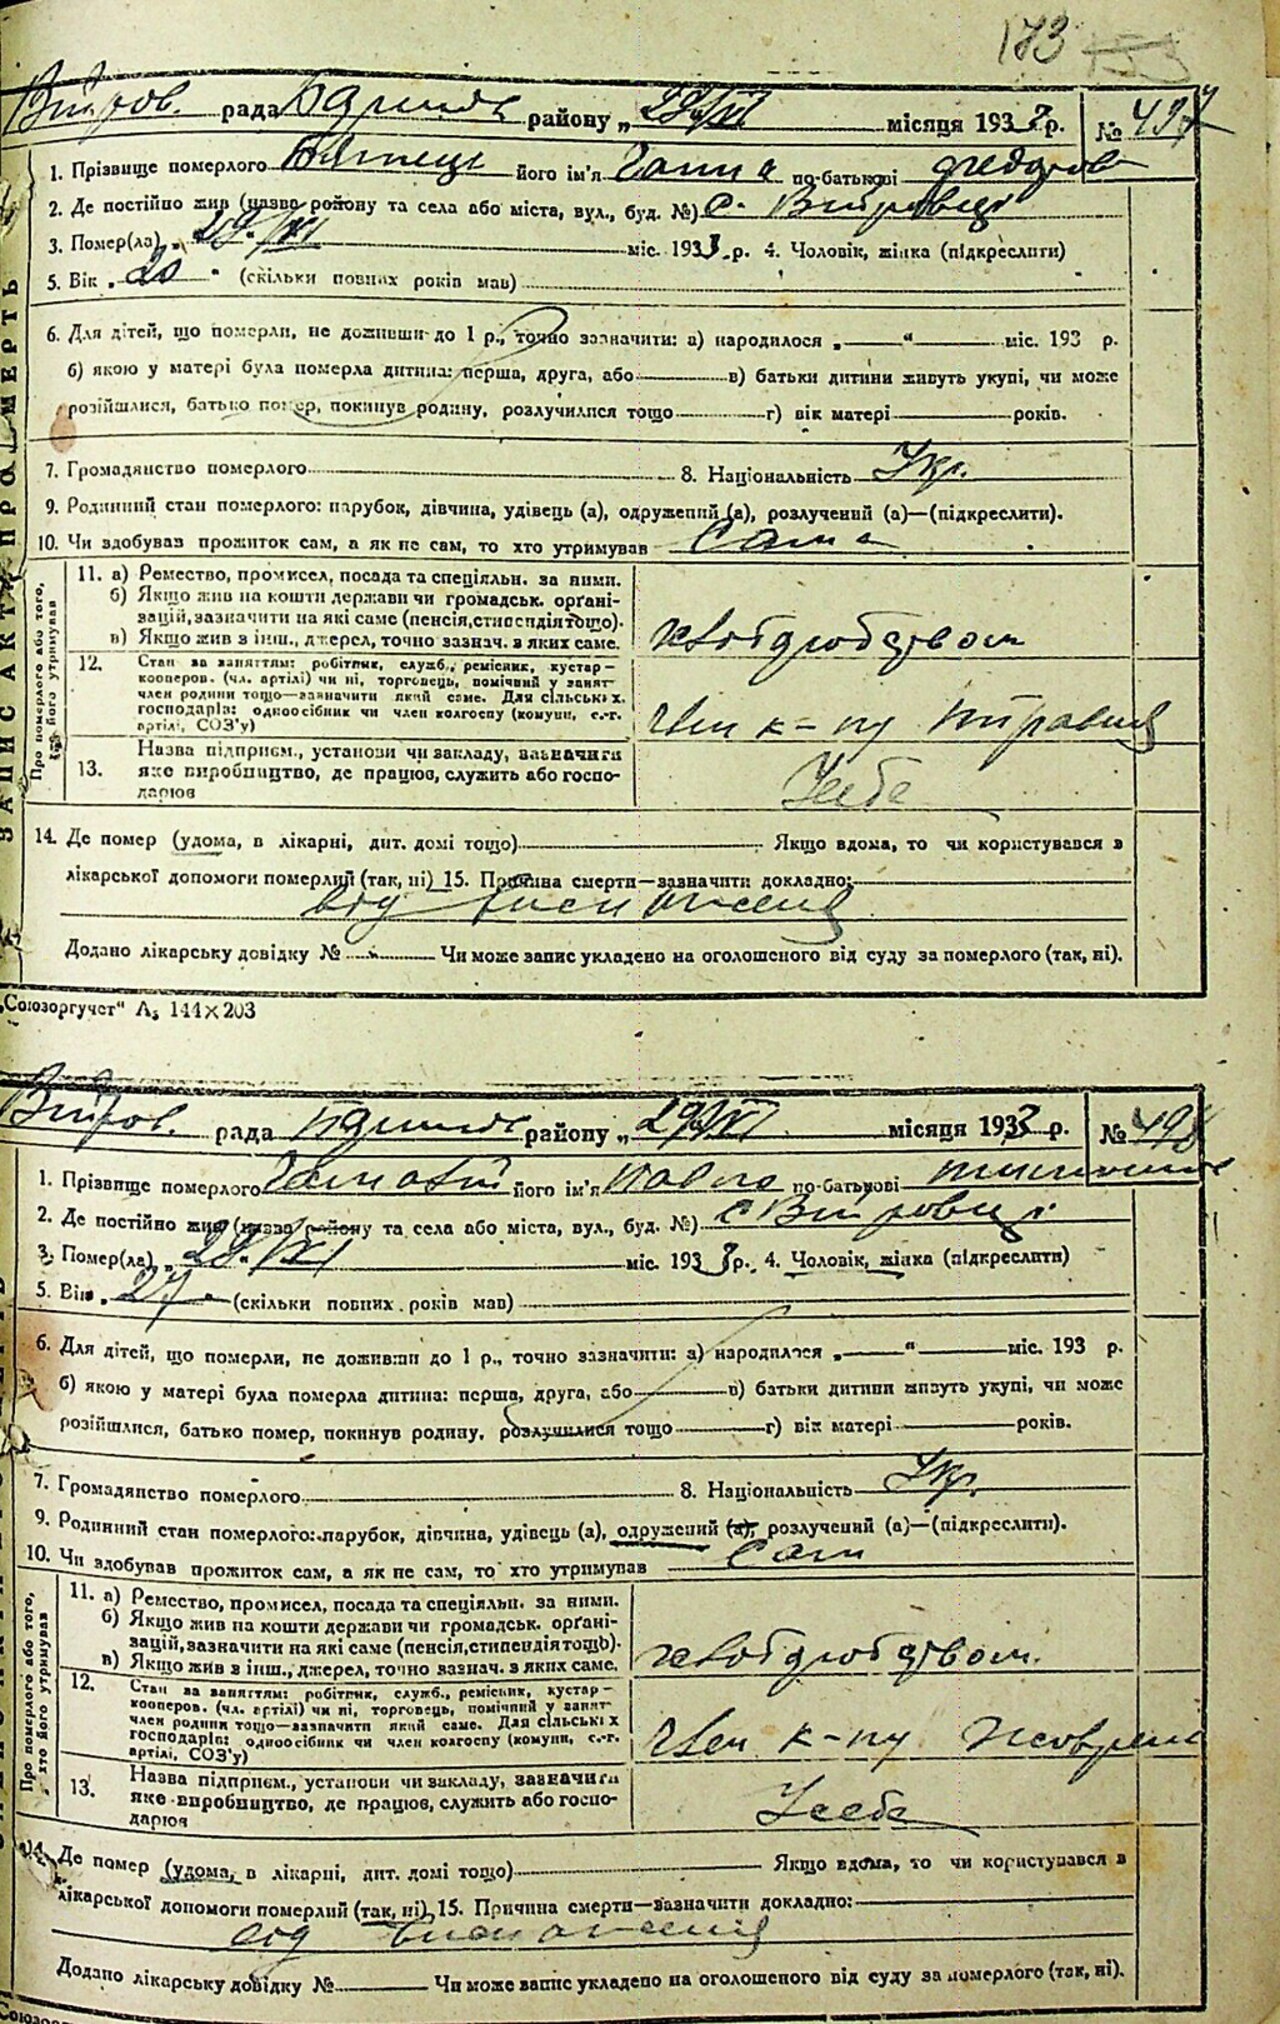 173
рада району „ місяця 1933 р. №
1. Прізвище померлого його ім'я Ганна по-батькові Федоров
2. Де постійно жив (назва району та села або міста, вул., буд. №) с.
3. Помер(ла) „ міс. 1933 р. 4. Чоловік, жінка (підкреслити)
5. Вік „ 20 " (скільки повних років мав)
6. Для дітей, що померли, не доживши до 1 р., точно зазначити: а) народилося „ “ міс. 193 р.
б) якою у матері була померла дитина: перша, друга, або в) батьки дитини живуть укупі, чи може
розійшлися, батько помер, покинув родину, розлучилися тощо г) вік матері років.
7. Громадянство померлого 8. Національність Укр.
9. Родинний стан померлого: парубок, дівчина, удівець (а), одружений (а), розлучений (а)—(підкреслити).
10. Чи здобував прожиток сам, а як не сам, то хто утримував Сама
ЗАПИС АКТА ПРО СМЕРТЬ
Про померлого або того, хто його утримував
11. а) Ремество, промисел, посада та спеціяльн. за ними.
б) Якщо жив на кошти держави чи громадськ. орґані-
зацій, зазначити на які саме (пенсія, стипендія тощо).
в) Якщо жив з інш., джерел, точно зазнач. з яких саме.
хліборобством
12. Стан за заняттям: робітник, служб., ремісник, кустар-
кооперов. (чл. артілі) чи ні, торговець, помічний у занят-
член родини тощо—зазначити який саме. Для сільських
господарів: одноосібник чи член колгоспу (комуни, с.-г.
артілі, СОЗ'у)
член к-пу
13. Назва підприєм., установи чи закладу, зазначити
яке виробництво, де працює, служить або госпо-
дарює
У себе
14. Де помер (удома, в лікарні, дит. домі тощо) Якщо вдома, то чи користувався з
лікарської допомоги померлий (так, ні) 15. Причина смерти—зазначити докладно:
від виснаження
Додано лікарську довідку № Чи може запис укладено на оголошеного від суду за померлого (так, ні).
„Союзоргучет“ А₅ 144×203
рада району „ місяця 1933 р. №
1. Прізвище померлого його ім'я Павло по-батькові
2. Де постійно жив (назва району та села або міста, вул., буд. №) с
3. Помер(ла) „ міс. 1933 р. 4. Чоловік, жінка (підкреслити)
5. Вік „ 27 " (скільки повних років мав)
6. Для дітей, що померли, не доживши до 1 р., точно зазначити: а) народилося „ “ міс. 193 р.
б) якою у матері була померла дитина: перша, друга, або в) батьки дитини живуть укупі, чи може
розійшлися, батько помер, покинув родину, розлучилися тощо г) вік матері років.
7. Громадянство померлого 8. Національність Укр.
9. Родинний стан померлого: парубок, дівчина, удівець (а), одружений (а), розлучений (а)—(підкреслити).
10. Чи здобував прожиток сам, а як не сам, то хто утримував Сам
Про померлого або того, хто його утримував
11. а) Ремество, промисел, посада та спеціяльн. за ними.
б) Якщо жив на кошти держави чи громадськ. орґані-
зацій, зазначити на які саме (пенсія, стипендія тощо).
в) Якщо жив з інш., джерел, точно зазнач. з яких саме.
хліборобством.
12. Стан за заняттям: робітник, служб., ремісник, кустар-
кооперов. (чл. артілі) чи ні, торговець, помічний у занят-
член родини тощо—зазначити який саме. Для сільських
господарів: одноосібник чи член колгоспу (комуни, с.-г.
артілі, СОЗ'у)
член к-пу
13. Назва підприєм., установи чи закладу, зазначити
яке виробництво, де працює, служить або госпо-
дарює
У себе
14. Де помер (удома, в лікарні, дит. домі тощо) Якщо вдома, то чи користувався в
лікарської допомоги померлий (так, ні) 15. Причина смерти—зазначити докладно:
від виснаження
Додано лікарську довідку № Чи може запис укладено на оголошеного від суду за померлого (так, ні).